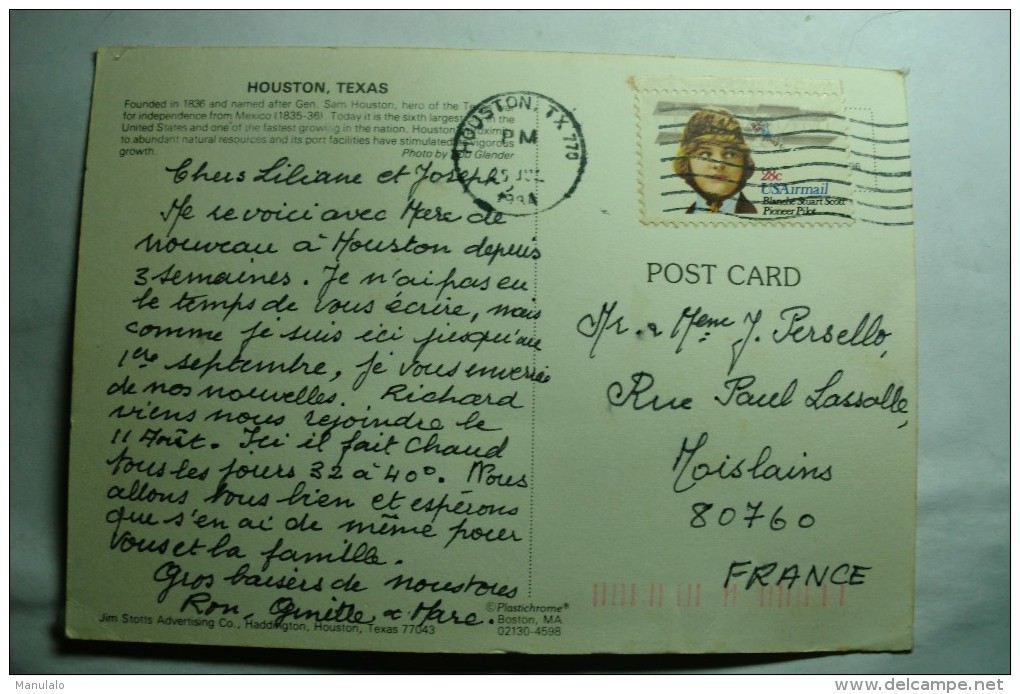 HOUSTON, TEXAS
Founded in 1836 and named after Gen. Sam Houston, hero of the
for independence from Mexico (1835-36). Today it is the sixth largest in the
United States and one of the fastest growing in the nation. Houston's
to abundant natural resources and its port facilities have stimulated vigorous
growth.
Photo by Glander
HOUSTON, TX 770
PM
28c
USAirmail
Blanche Stuart Scott
Pioneer Pilot
Chers Liliane et Joseph.
Me revoici avec Marc de
nouveau à Houston depuis
3 semaines. Je n'ai pas eu
le temps de vous écrire, mais
comme je suis ici jusqu'au
1er septembre, je vous enverrai
de nos nouvelles. Richard
viens nous rejoindre le
11 Août. Ici il fait Chaud
tous les jours 32 à 40°. Nous
allons tous bien et espérons
que s'en ai de même pour
vous et la famille.
Gros baisers de nous tous
Ron, Ginette & Marc.
POST CARD
Mr. & Mme J. Persello,
Rue Paul Lassalle,
Moislains
80760
FRANCE
Jim Stotts Advertising Co., Haddington, Houston, Texas 77043
©Plastichrome®
Boston, MA
02130-4598
Manulalo
delcampe.net